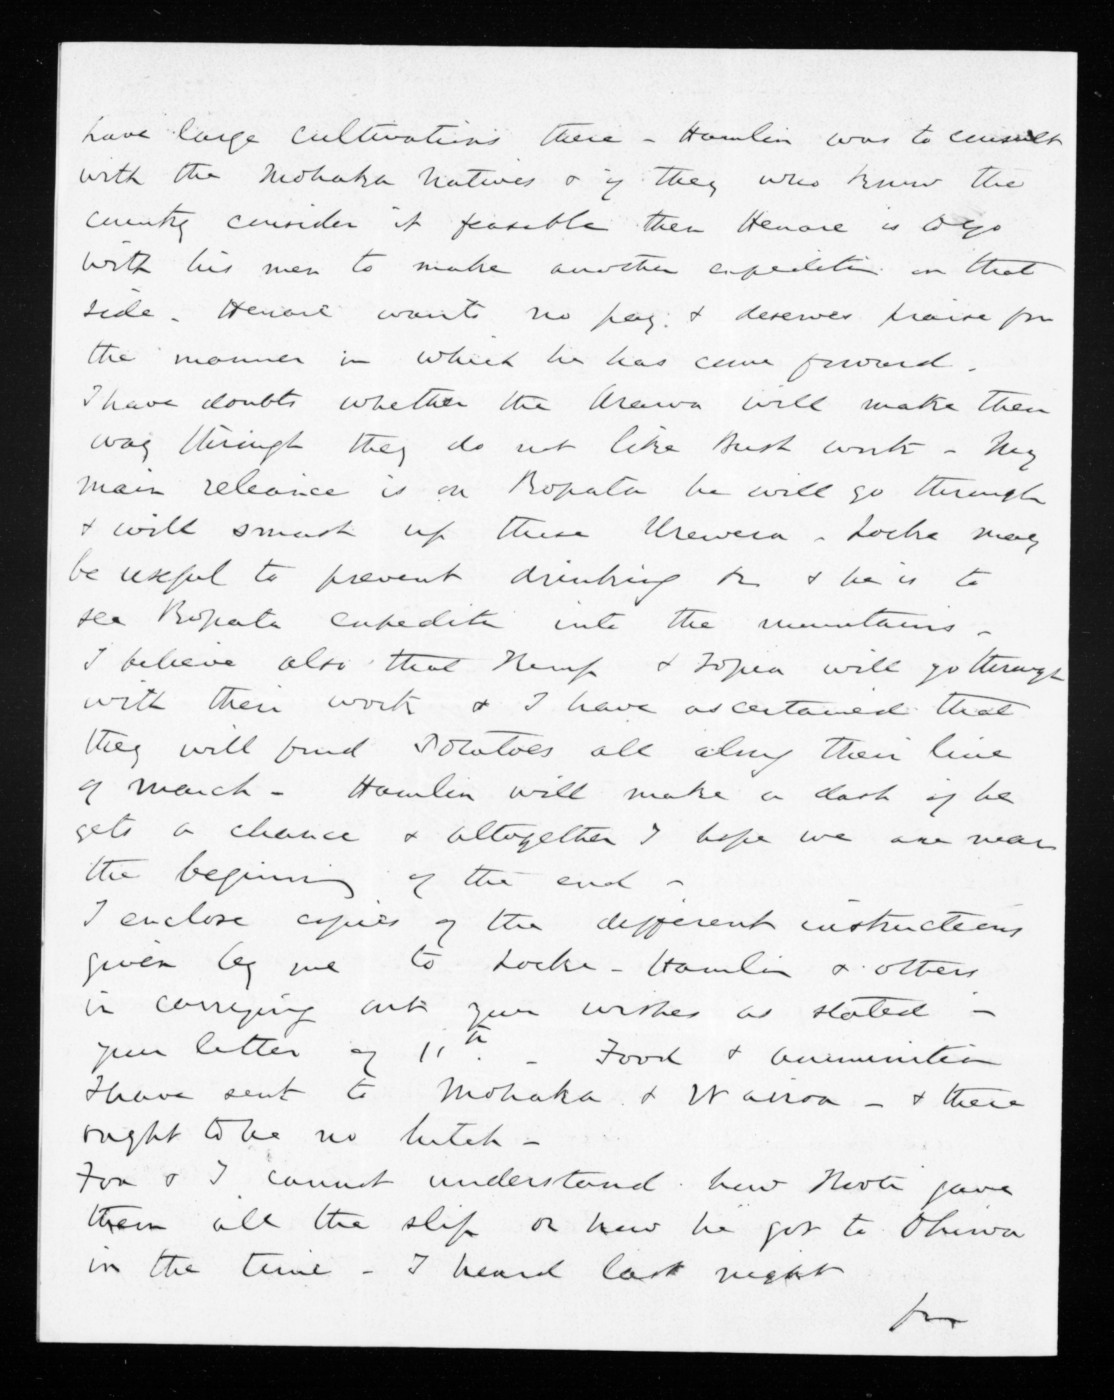 have large cultivations there - Hamlin was to consult
with the Mohaka Natives & if they who know the
country consider it feasible then Henare is to go
with his men to make another expeditn on that
side. Henare wants no pay. & deserves praise for
the manner in which he has come forward.
I have doubts whether the Arawa will make their
way through they do not like Bush work - My
main releance is on Ropata he will go through
& will smash up these Urewera - Locke may
be useful to prevent drinking &c & he is to
see Ropata expedite into the mountains -
I believe also that Kemp & Topia will go through
with their work & I have ascertained that
they will find Potatoes all along their line
of march - Hamlin will make a dash if he
gets a chance & altogether I hope we are near
the beginning of the end -
I enclose copies of the different instructions
given by me to Locke - Hamlin & others
in carrying out your wishes as stated in
your letter of 11th. - Food & ammunition
I have sent to Mohaka & Wairoa - & there
ought to be no hitch -
Fox & I cannot understand how Kooti gave
them all the slip or how he got to Ohiwa
in the time - I heard last night
from